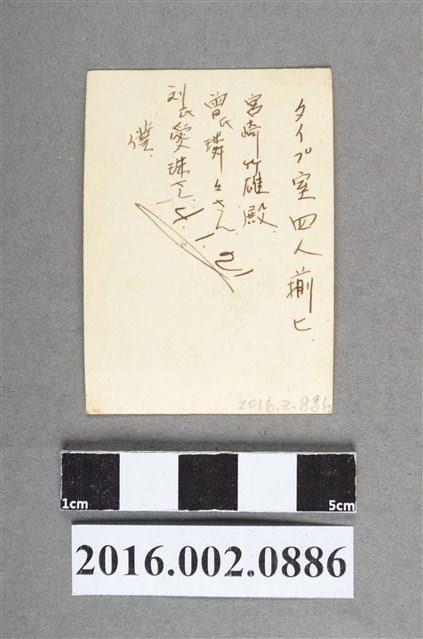 タイプ室四人揃ヒ.
宮崎竹雄殿.
曽氏璘々さん.
刘氏愛珠〃
僕.
2016.2.886
1cm
5cm
2016.002.0886